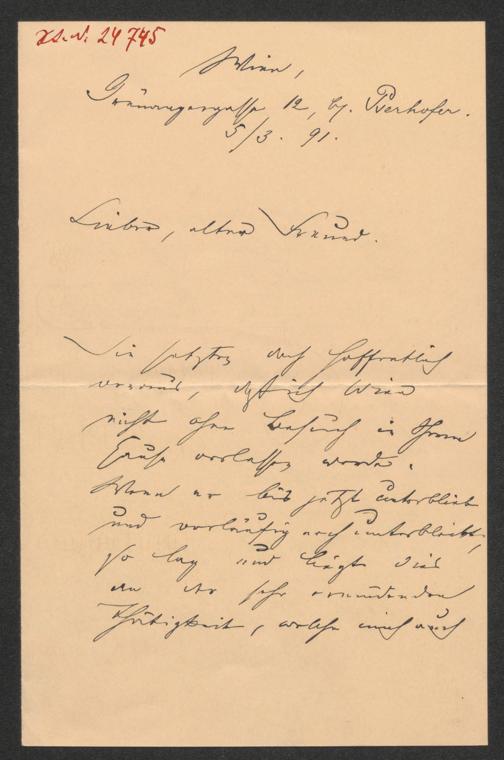 H.I.N. 24745
Wien,
Grünangergasse 12, bei Berhofer.
5/3. 91.
Lieber, alter Freund.
Sie setzten doch hoffentlich
voraus, daß ich Wien
nicht ohne Besuch in Ihrem
Hause verlassen werde.
Wenn er bis jetzt unterblieb
und vorläufig noch unterbleibt,
so lag und liegt dies
an der sehr ermüdenden
Thätigkeit, welche mich auch